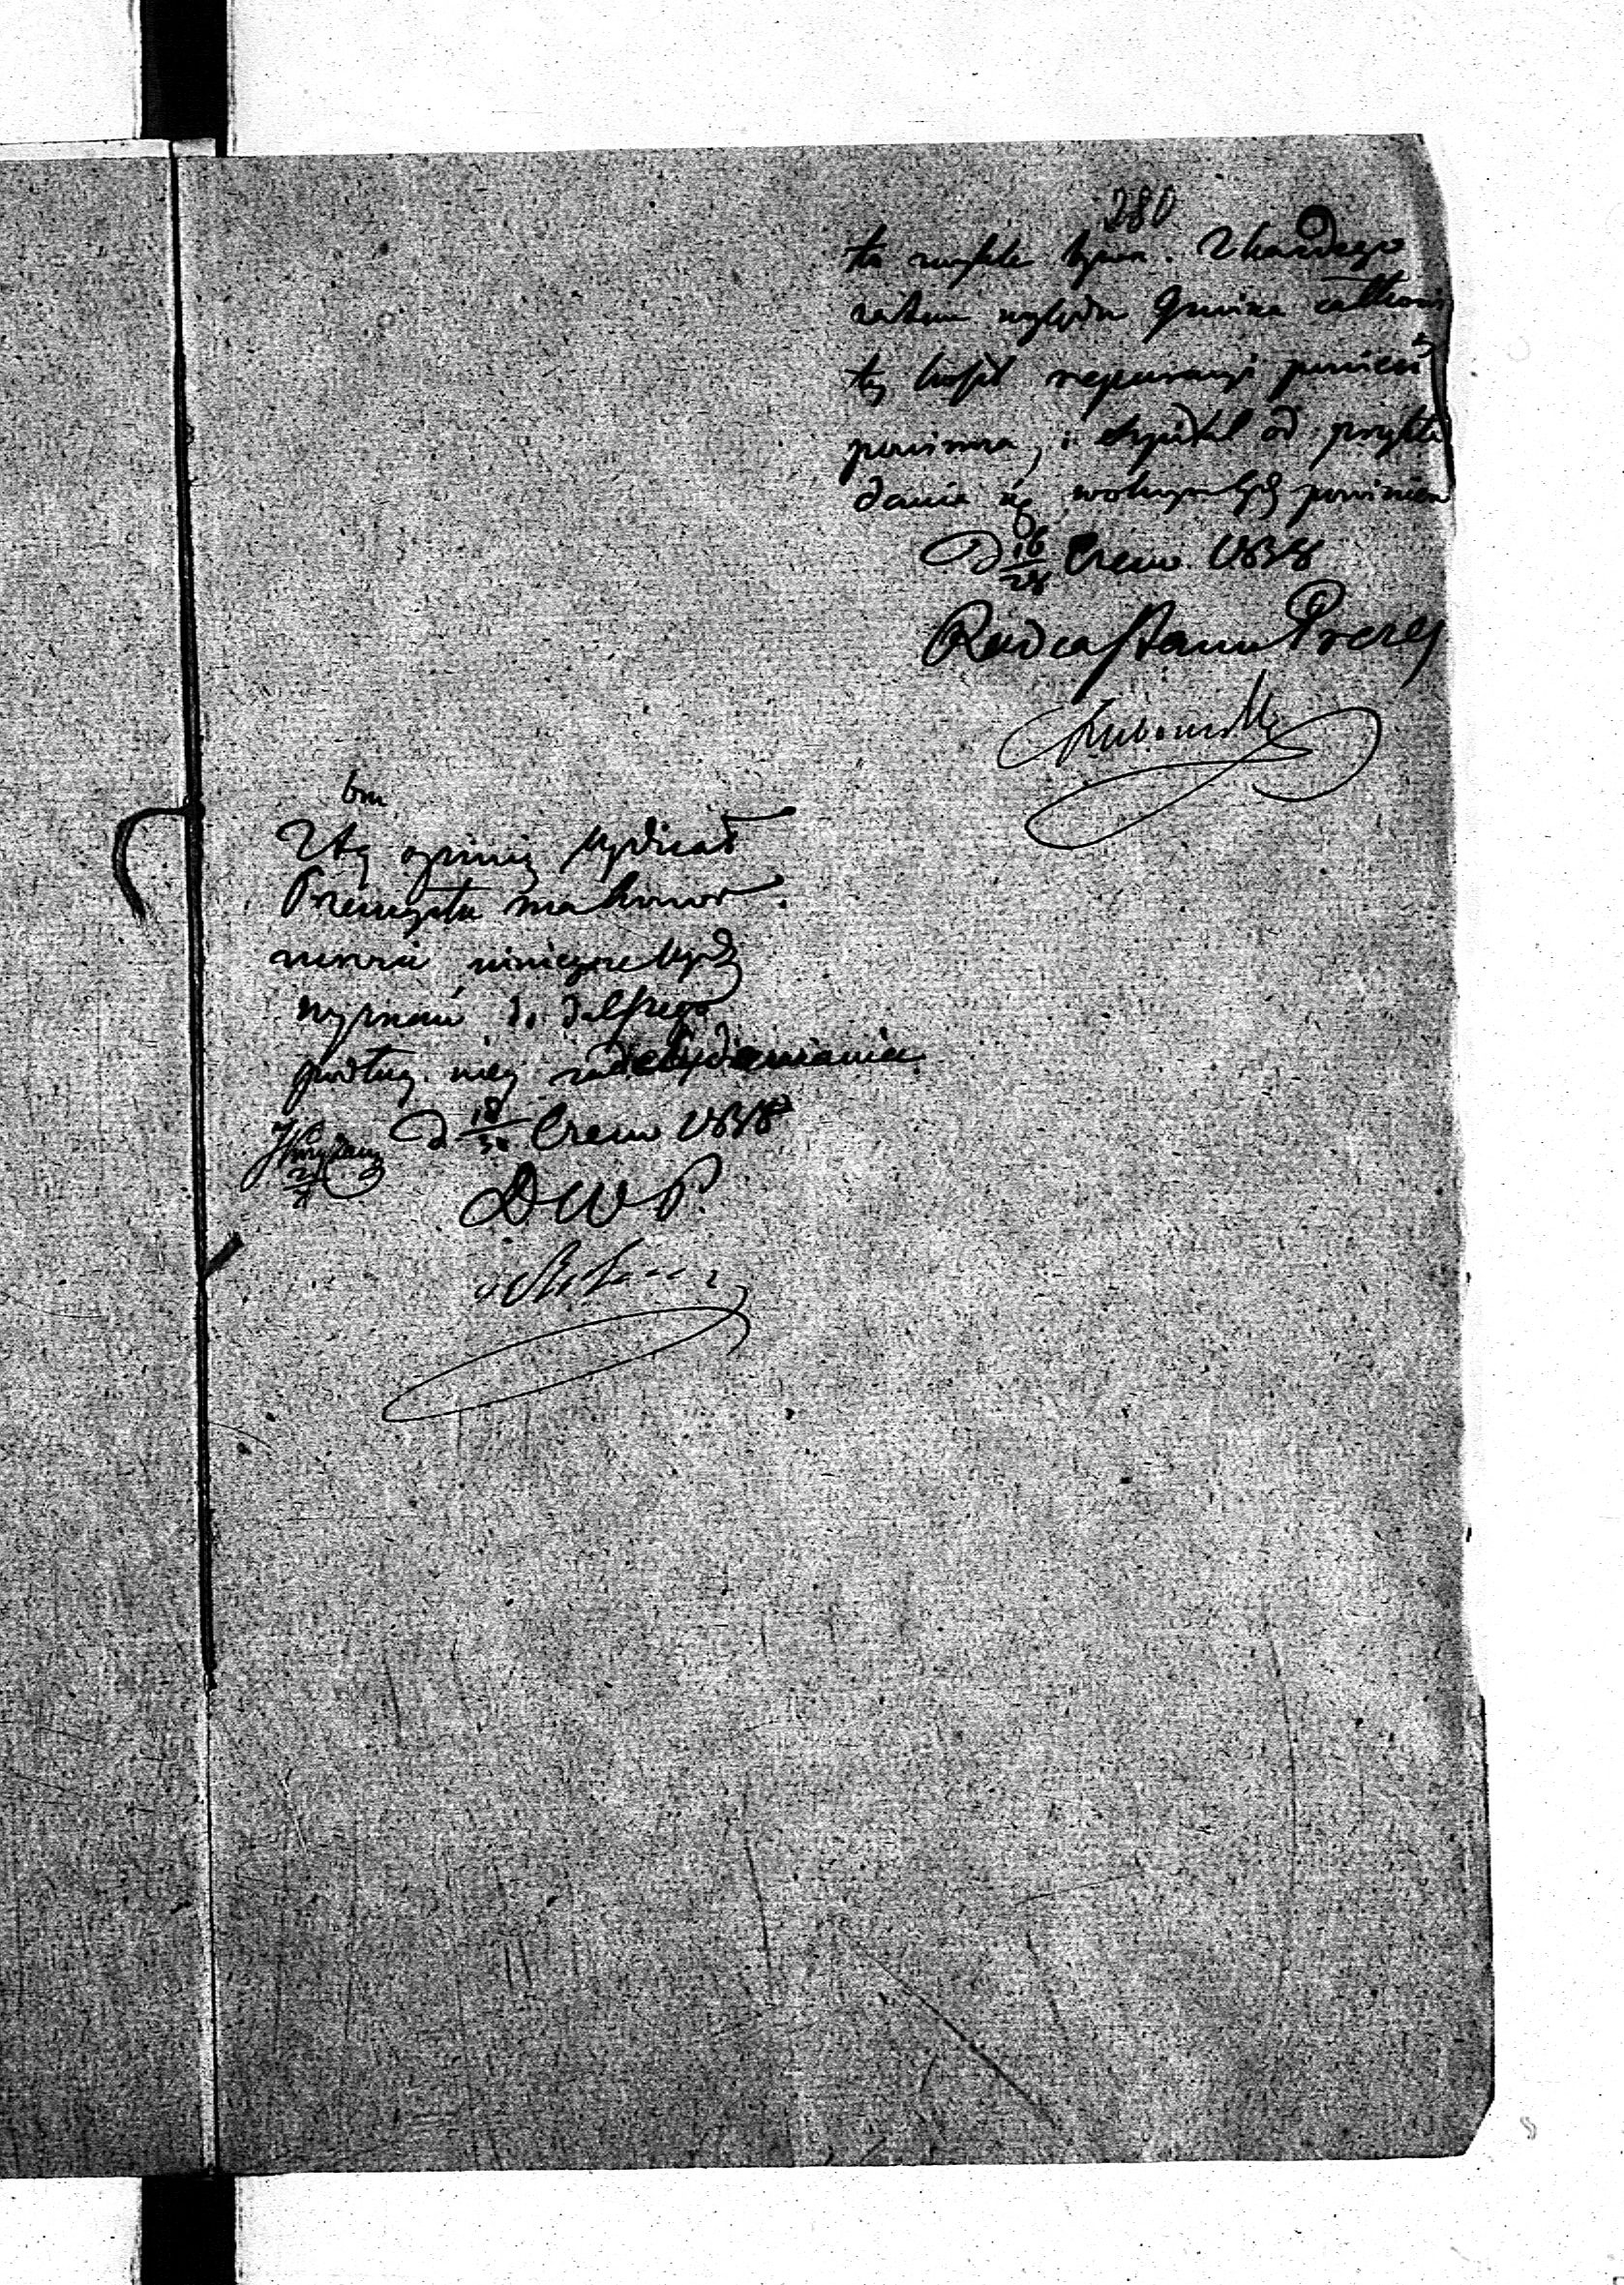 280
ta zwykle bywa. Z każdego
zatem względu Gmina całkowi
tę koszt reperacyi ponieść
powinna, i Szpital od przykła
dania się wolnym być powinien
D 16/28 Czerw. 1838
Radca Stanu Prezes
bm
Z tą opinią Wydział
Przemysłu ma honor
zwrócić niniejsze Wydz
wyznań do dalszego
podług niej zadecydowania
D 18/30 Czerw 1838
D W P.